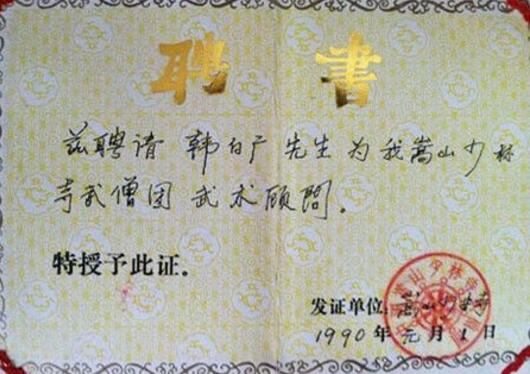 聘书
兹聘请 韩白广 先生为我嵩山少林
寺武僧团 武术顾问。
特授予此证。
发证单位:嵩山少林寺
1990年元月1日